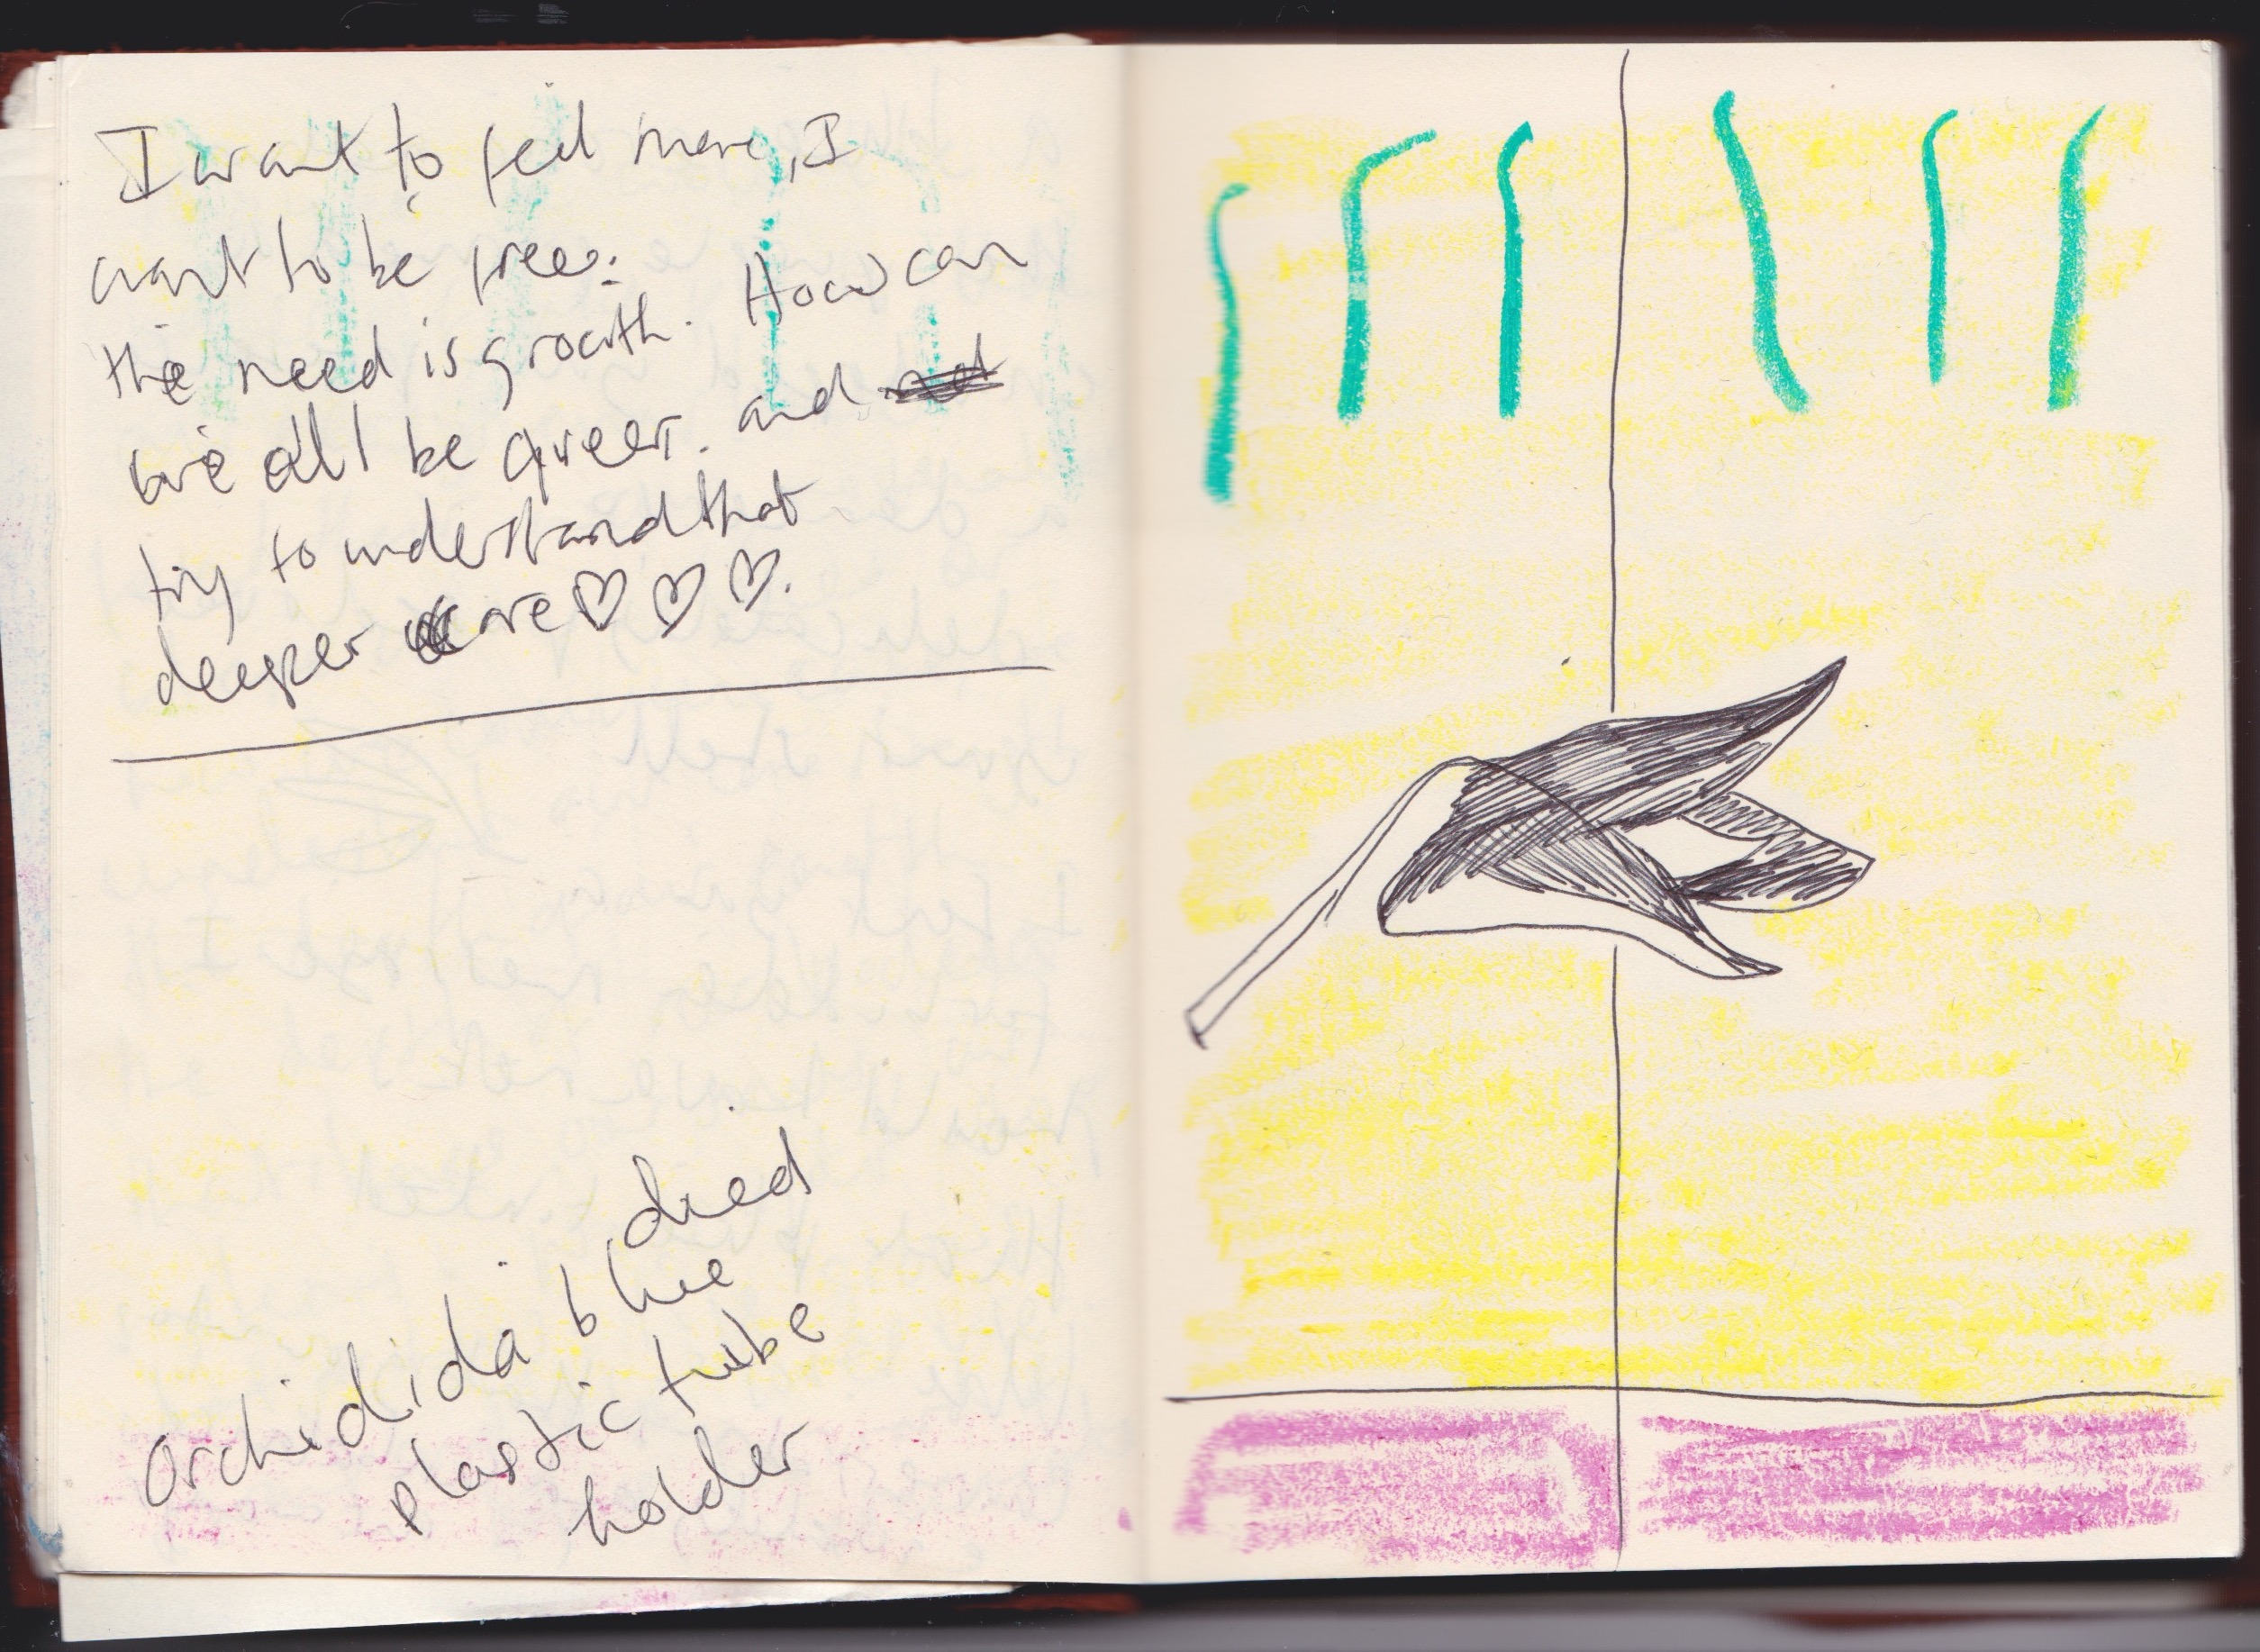 I want to feel more, I
want to be free.
the need is growth. How can
we all be queer. and
try to understand that
deeper care ♡ ♡ ♡.
died
orchidida blue
plastic tube
holder